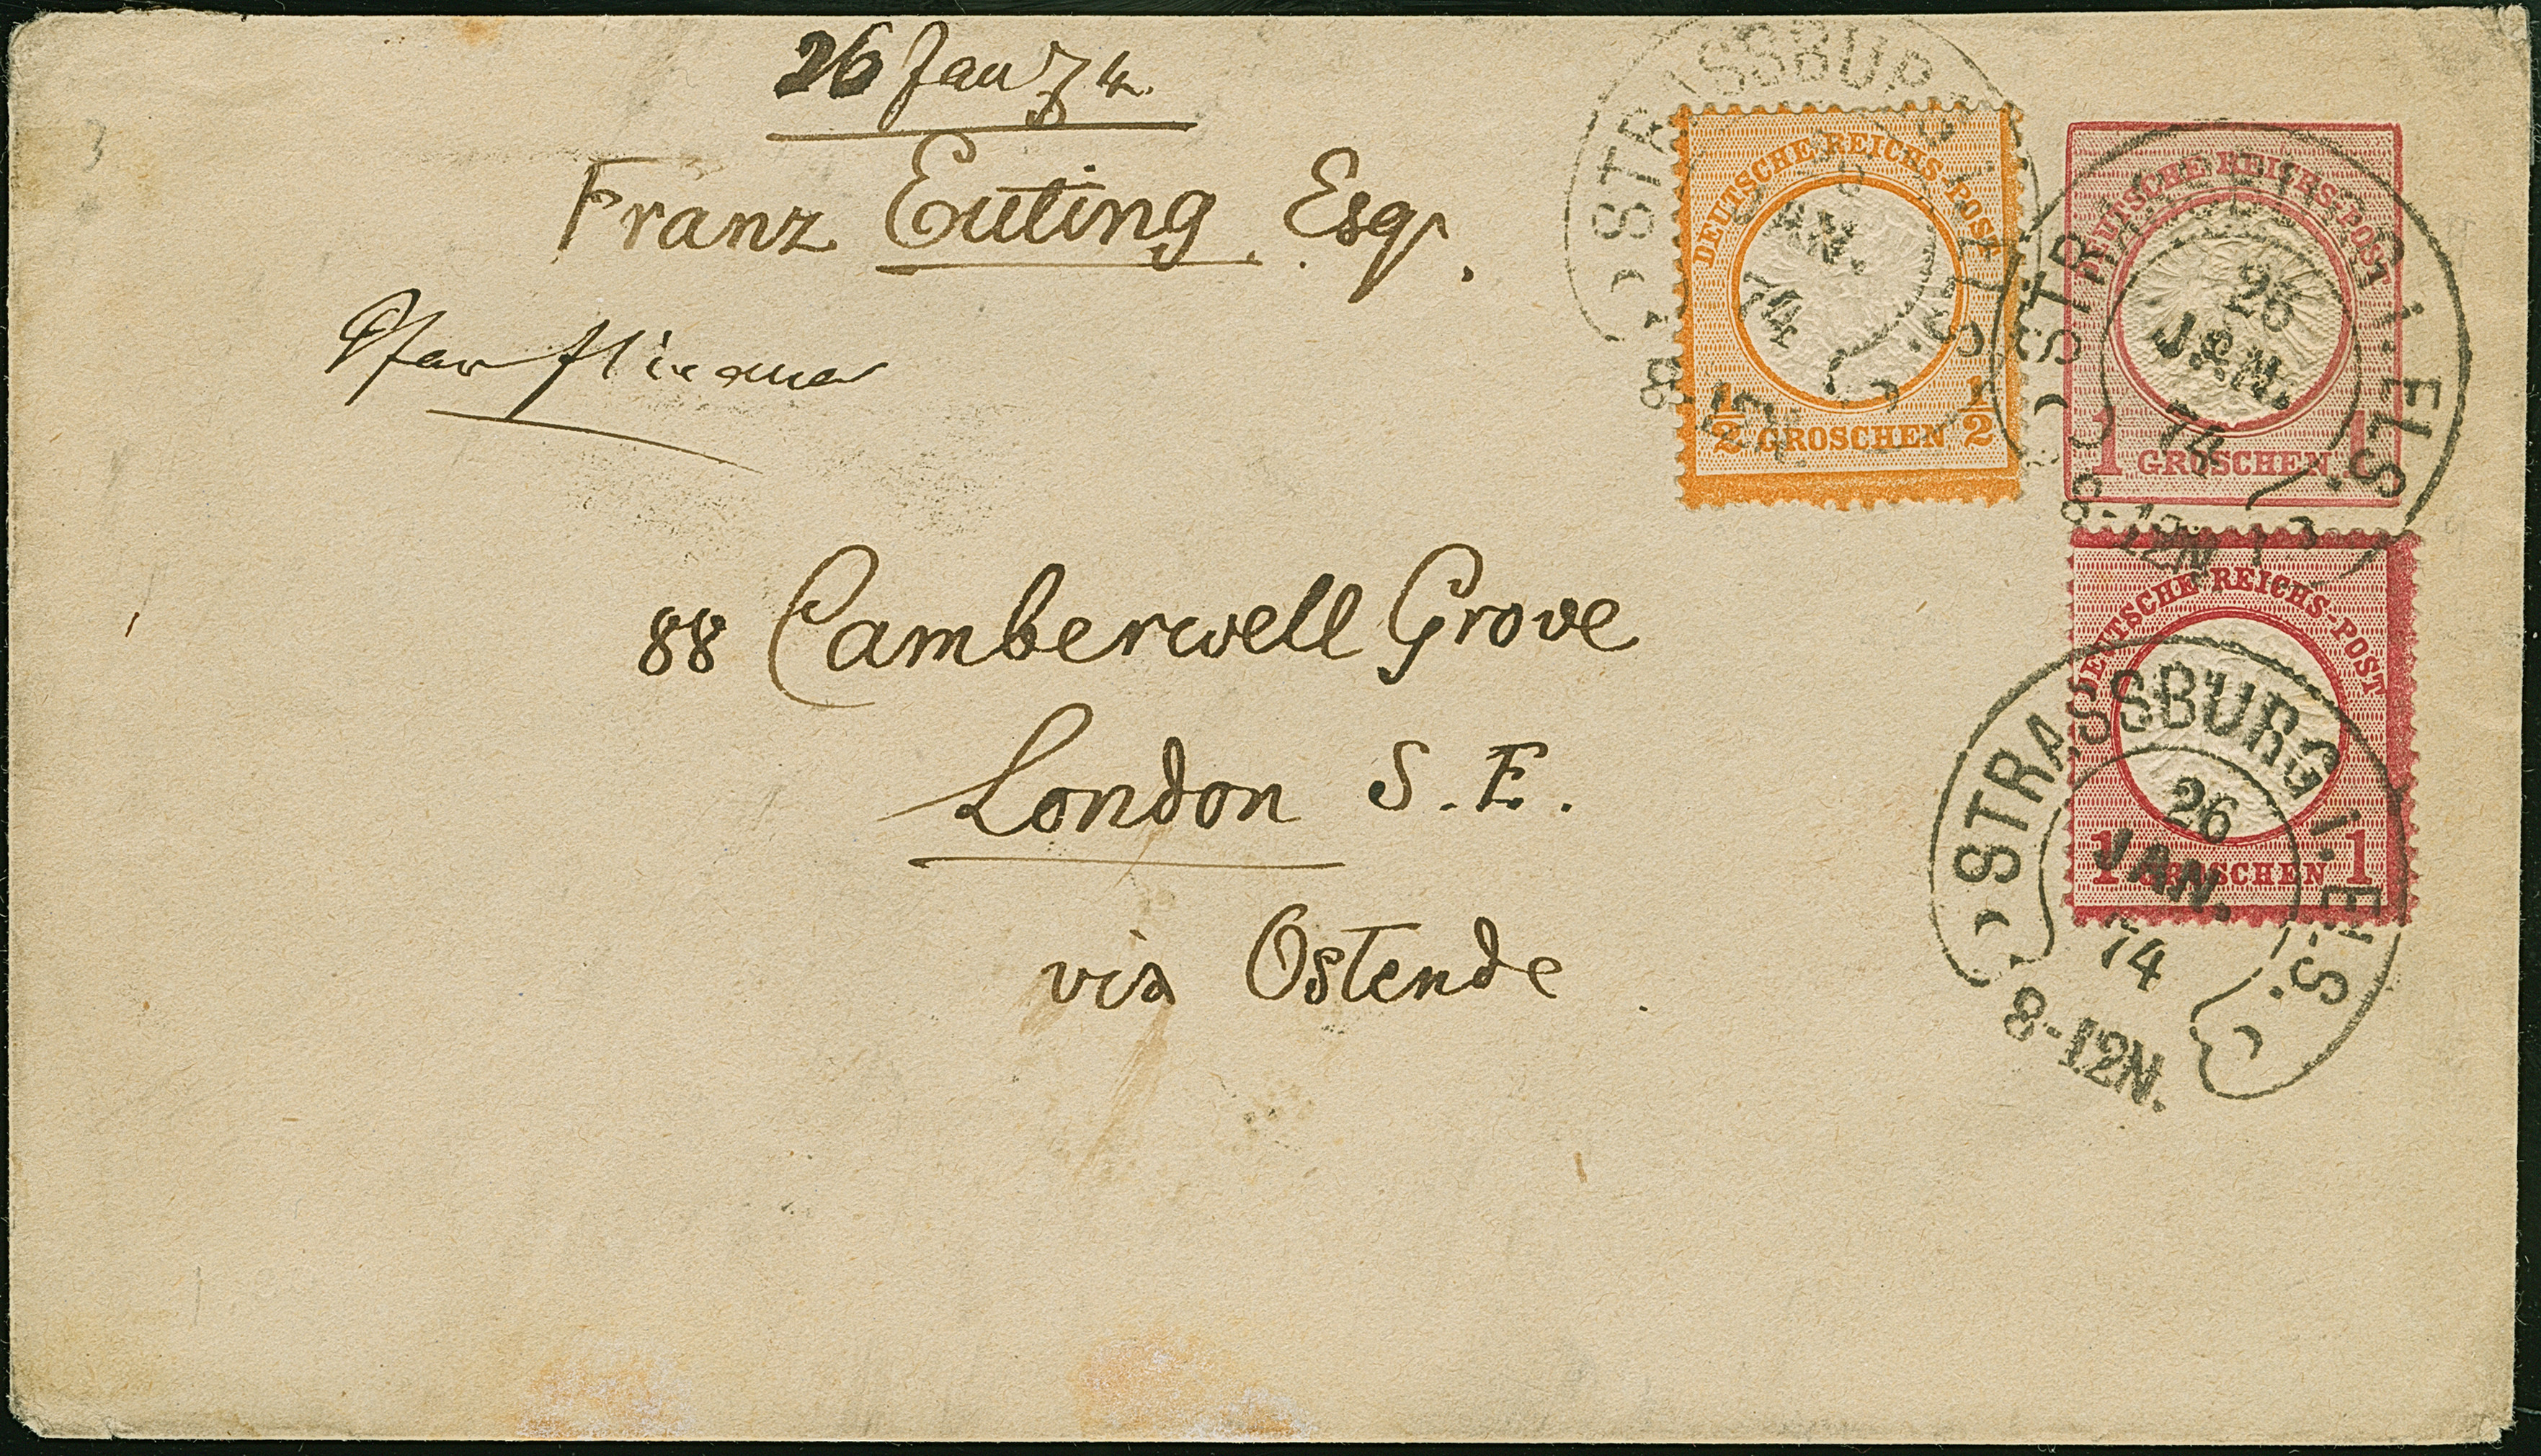 26 Jan 74.
Franz Euting Esqr.
88 Camberwell Grove
London S. E.
via Ostende
STRASSBURG I. ELS.
26
JAN.
74
8-12N.
DEUTSCHE REICHS-POST
1/2 GROSCHEN 1/2
STRASSBURG I. ELS.
26
JAN.
74
8-12N.
DEUTSCHE REICHS-POST
1 GROSCHEN 1
DEUTSCHE REICHS-POST
1 GROSCHEN 1
STRASSBURG I. ELS.
26
JAN.
74
8-12N.